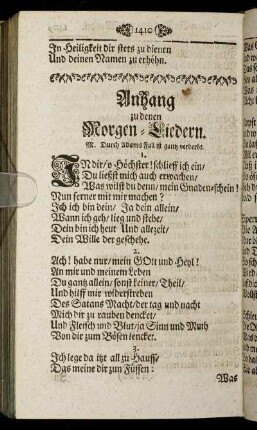 1410
In Heiligkeit dir stets zu dienen
Und deinen Namen zu erhöhn.
Anhang
zu denen
Morgen-Liedern.
M. Durch Adams Fall ist gantz verderbt.
1.
IN dir/ o Höchster! schlieff ich ein/
Du liessst mich auch erwachen/
Was wilst du denn/ mein Gnaden-schein!
Nun ferner mit mir machen?
Ich ich bin dein/ Ja dein allein/
Wann ich geh/ lieg und stehe/
Dein bin ich heut Und allezeit/
Dein Wille der geschehe.
2.
Ach! habe nur/ mein GOtt und Heyl!
An mir und meinem Leben
Du gantz allein/ sonst keiner/ Theil/
Und hilff mir widerstreben
Des Satans Macht/ der tag und nacht
Mich dir zu rauben dencket/
Und Fleisch und Blut/ ja Sinn und Muth
Von dir zum Bösen lencket.
3.
Ich lege da itzt all zu Hauff/
Das meine dir zun Füssen:
Was